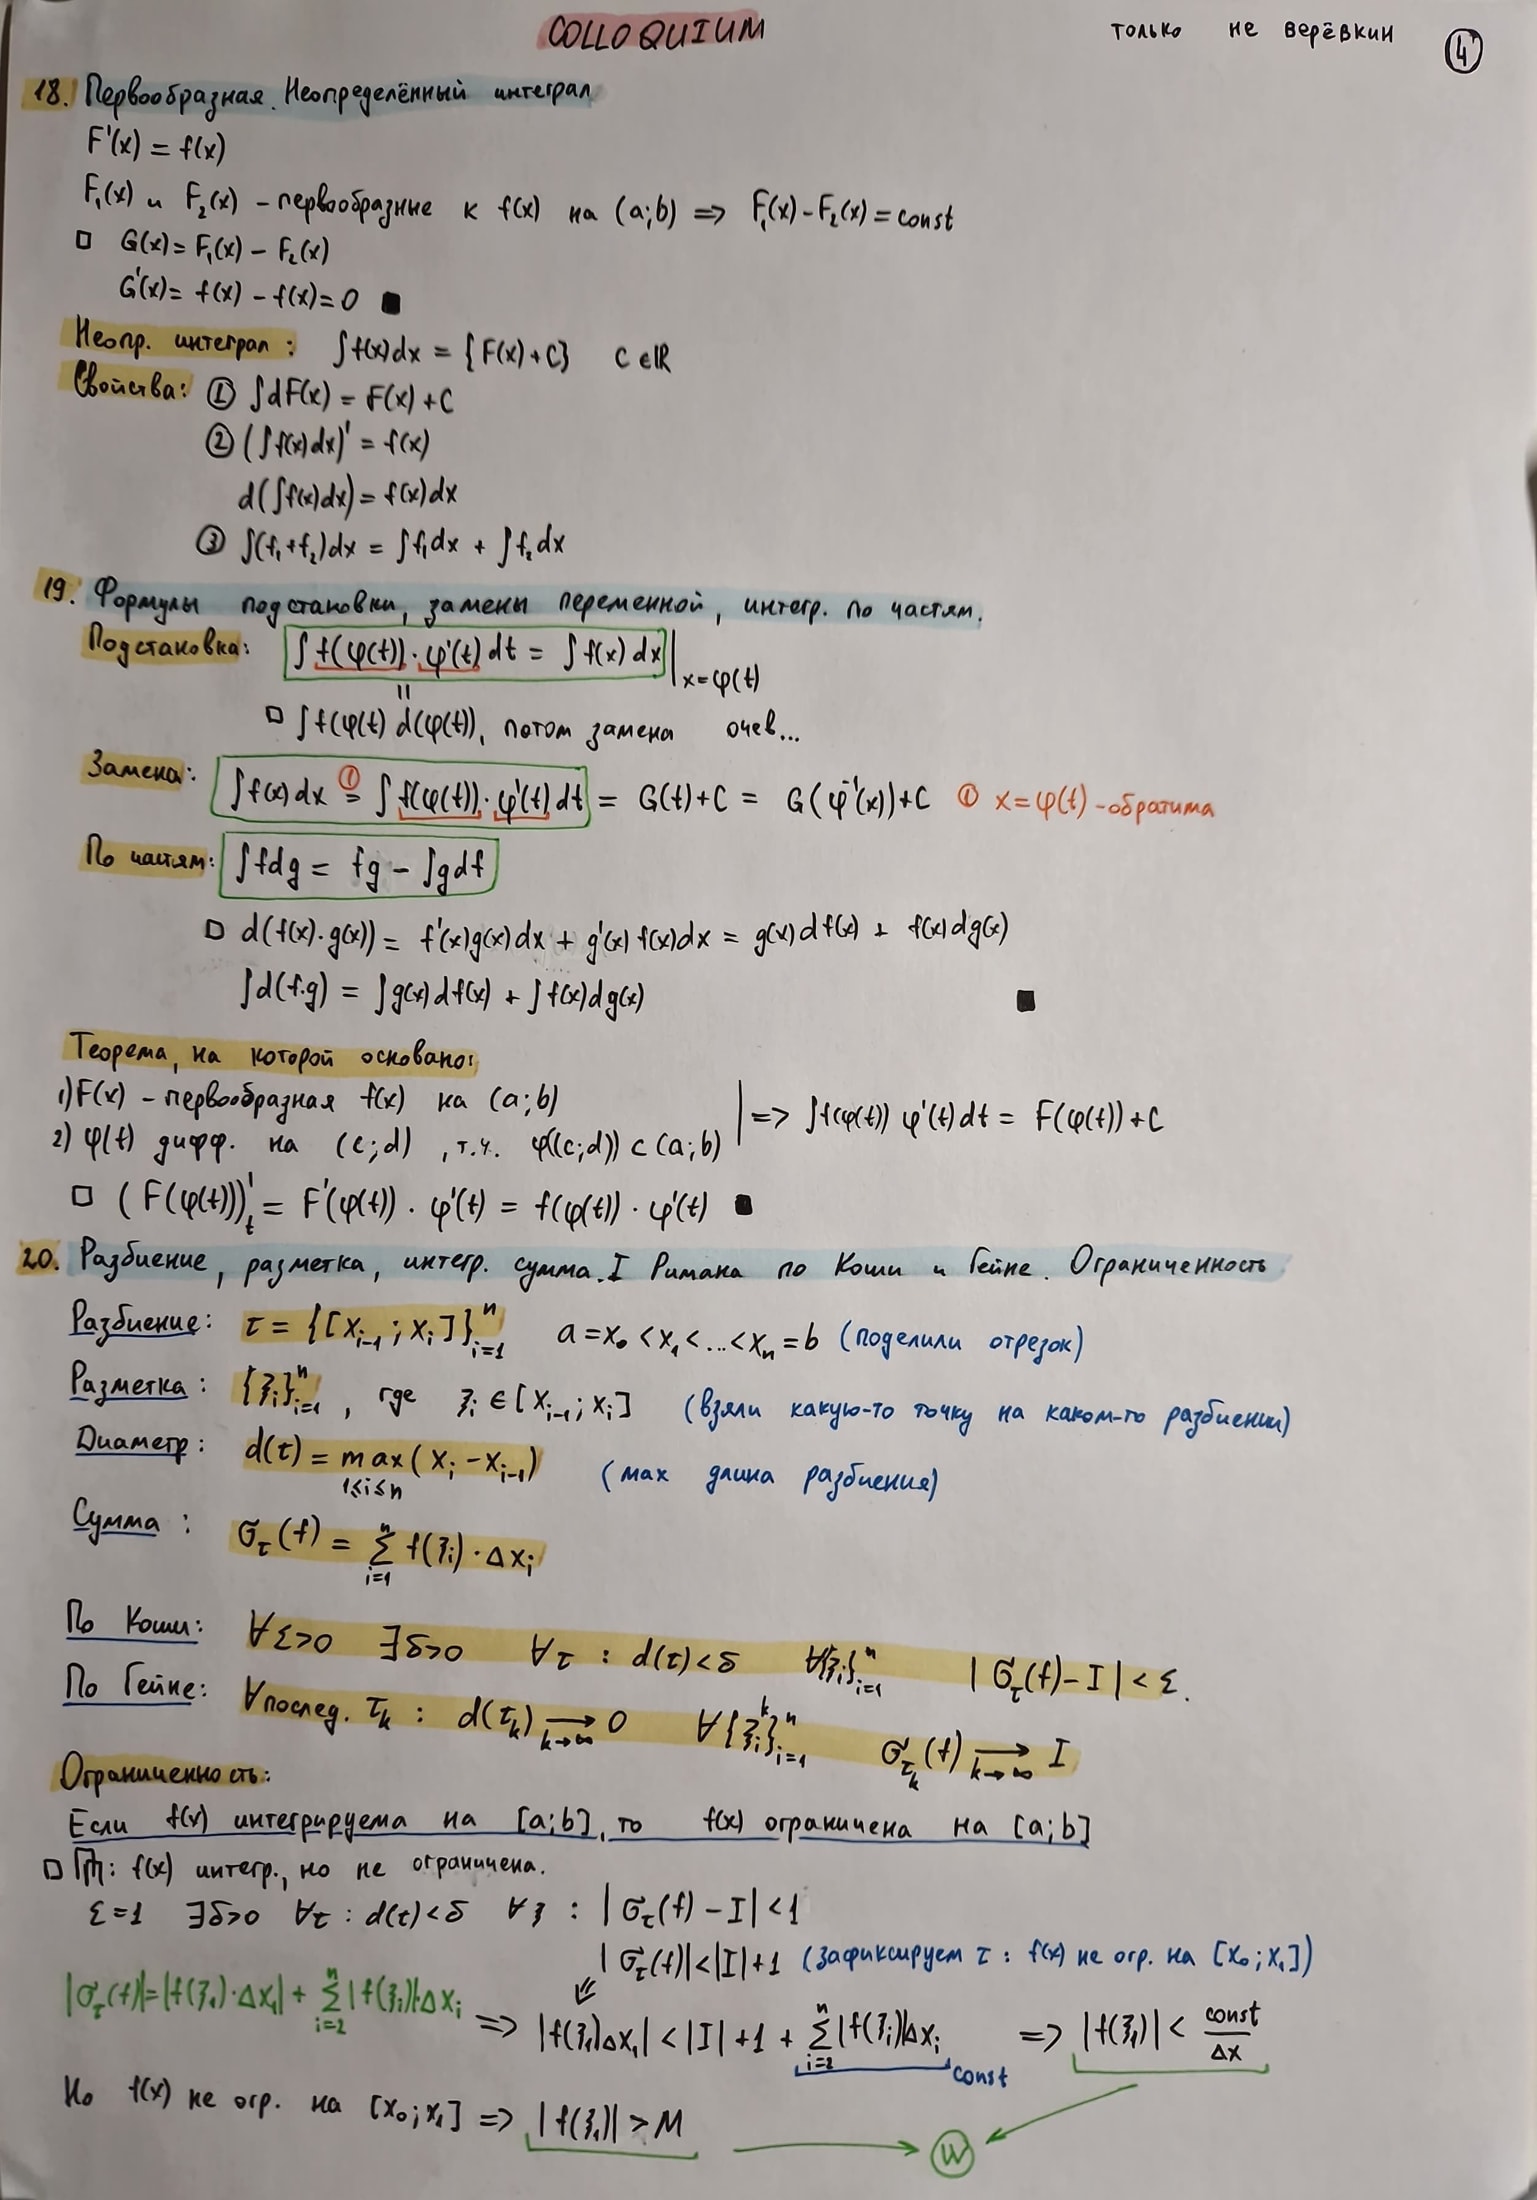 COLLOQUIUM
только не верёвкин
4
18. Первообразная. Неопределённый интеграл
F'(x) = f(x)
F₁(x) и F₂(x) - первообразные к f(x) на (a;b) => F₁(x) - F₂(x) = const
□ G(x) = F₁(x) - F₂(x)
G'(x) = f(x) - f(x) = 0 ■
Неопр. интеграл: ∫f(x)dx = {F(x) + C} C ∈ ℝ
Свойства: ① ∫dF(x) = F(x) + C
② (∫f(x)dx)' = f(x)
d(∫f(x)dx) = f(x)dx
③ ∫(f₁+f₂)dx = ∫f₁dx + ∫f₂dx
19. Формулы подстановки, замены переменной, интегр. по частям.
Подстановка: ∫f(φ(t))·φ'(t)dt = ∫f(x)dx |x=φ(t)
□ ∫f(φ(t) d(φ(t)), потом замена очев...
Замена: ∫f(x)dx ①= ∫f(φ(t))·φ'(t)dt = G(t)+C = G(φ⁻¹(x))+C ① x=φ(t) - обратима
По частям: ∫fdg = fg - ∫gdf
□ d(f(x)·g(x)) = f'(x)g(x)dx + g'(x)f(x)dx = g(x)df(x) + f(x)dg(x)
∫d(f·g) = ∫g(x)df(x) + ∫f(x)dg(x) ■
Теорема, на которой основано:
1) F(x) - первообразная f(x) на (a;b)
2) φ(t) дифф. на (c;d), т.ч. φ((c;d)) ⊂ (a;b) | => ∫f(φ(t)) φ'(t)dt = F(φ(t))+C
□ (F(φ(t)))'ₜ = F'(φ(t))·φ'(t) = f(φ(t))·φ'(t) ■
20. Разбиение, разметка, интегр. сумма. I Римана по Коши и Гейне. Ограниченность
Разбиение: τ = {[xᵢ₋₁; xᵢ]}ⁿᵢ₌₁ a = x₀ < x₁ < ... < xₙ = b (поделили отрезок)
Разметка: {ξᵢ}ⁿᵢ₌₁, где ξᵢ ∈ [xᵢ₋₁; xᵢ] (взяли какую-то точку на каком-то разбиении)
Диаметр: d(τ) = max(xᵢ - xᵢ₋₁) (max длина разбиения)
1≤i≤n
Сумма: σ_τ(f) = Σⁿᵢ₌₁ f(ξᵢ)·Δxᵢ
По Коши: ∀ε>0 ∃δ>0 ∀τ : d(τ)<δ ∀{ξᵢ}ⁿᵢ₌₁ |σ_τ(f) - I| < ε.
По Гейне: ∀послед. τₖ : d(τₖ) →(k→∞) 0 ∀{ξᵢᵏ}ⁿᵢ₌₁ σ_τₖ(f) →(k→∞) I
Ограниченность:
Если f(x) интегрируема на [a;b], то f(x) ограничена на [a;b]
□ f(x) интегр., но не ограничена.
ε=1 ∃δ>0 ∀τ : d(τ)<δ ∀ξ : |σ_τ(f) - I| < 1
|σ_τ(f)| < |I|+1 (зафиксируем τ : f(x) не огр. на [x₀; x₁])
|σ_τ(f)| = |f(ξ₁)·Δx₁| + Σⁿᵢ₌₂ |f(ξᵢ)|·Δxᵢ => |f(ξ₁)Δx₁| < |I| + 1 + Σⁿᵢ₌₂ |f(ξᵢ)|Δxᵢ => |f(ξ₁)| < const/Δx
const
Но f(x) не огр. на [x₀; x₁] => |f(ξ₁)| > M
W